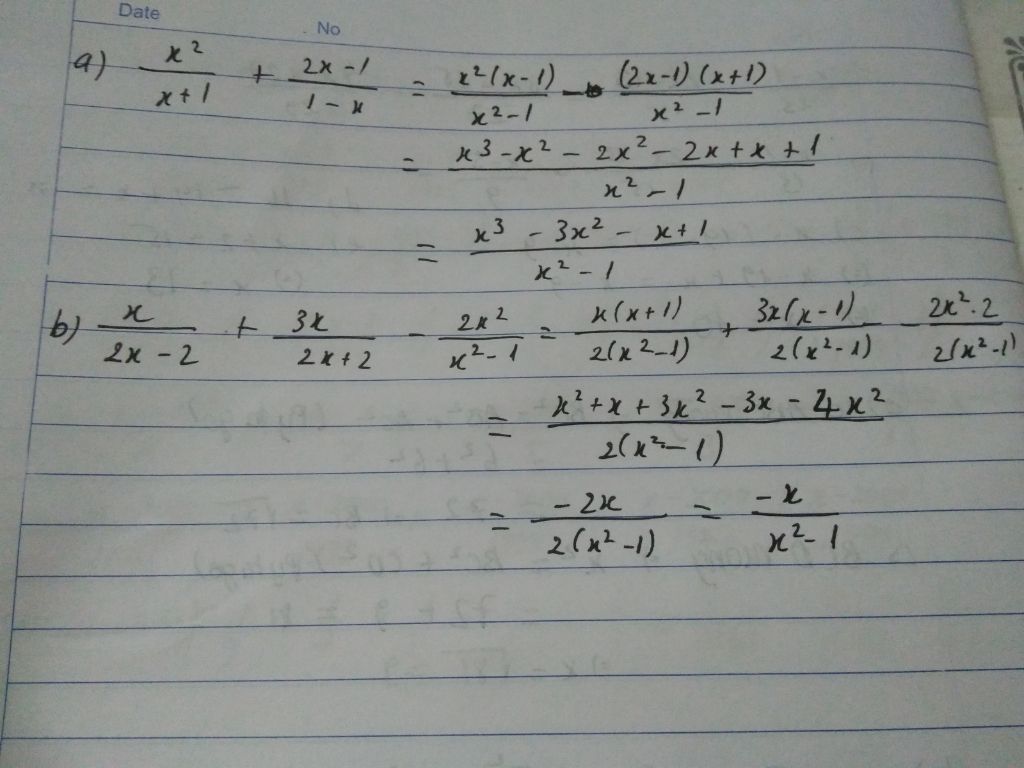 Date
No
a) x²/(x+1) + (2x-1)/(1-x) = x²(x-1)/(x²-1) - (2x-1)(x+1)/(x²-1)
= (x³-x²-2x²-2x+x+1)/(x²-1)
= (x³-3x²-x+1)/(x²-1)
b) x/(2x-2) + 3x/(2x+2) - 2x²/(x²-1) = x(x+1)/2(x²-1) + 3x(x-1)/2(x²-1) - 2x².2/2(x²-1)
= (x²+x+3x²-3x-4x²)/2(x²-1)
= -2x/2(x²-1) = -x/(x²-1)